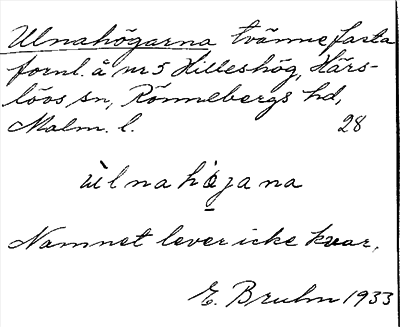 Ulnahögarna tvänne fasta
fornl. å nr 5 Hilleshög, Härs-
lövs sn, Rönnebergs hd,
Malm. l. 28
ùlnahö̱jana
Namnet lever icke kvar.
E. Bruhn 1933